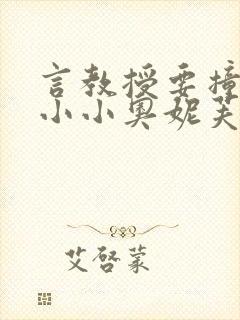 言教授要撞
小小奥妮芙
艾啓蒙